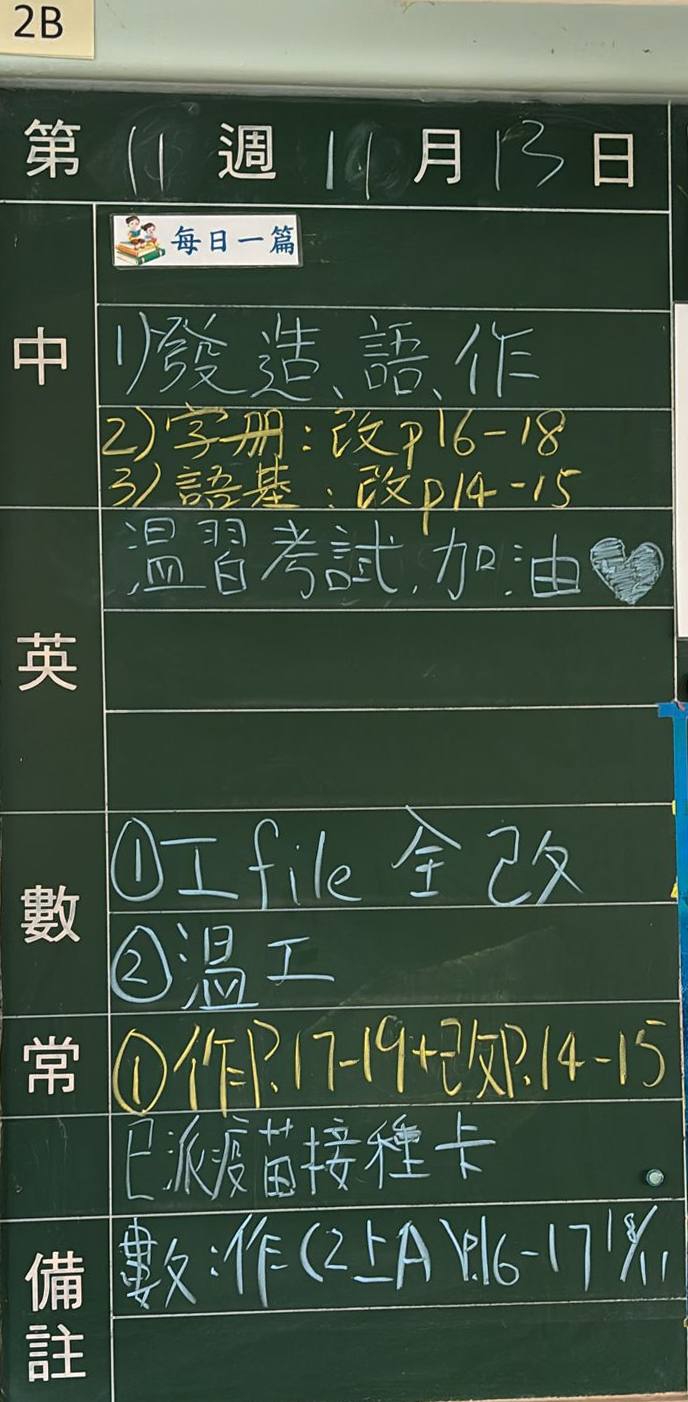 2B
第 11 週 11 月 13 日
每日一篇
中
1)發造、語、作
2)字册:改p16-18
3)語基:改p14-15
英
溫習考試,加油
數
①工file 全改
②溫工
常
①作P.17-19+改P.14-15
已派疫苗接種卡
備註
數:作(2上A)P.16-17 18/11